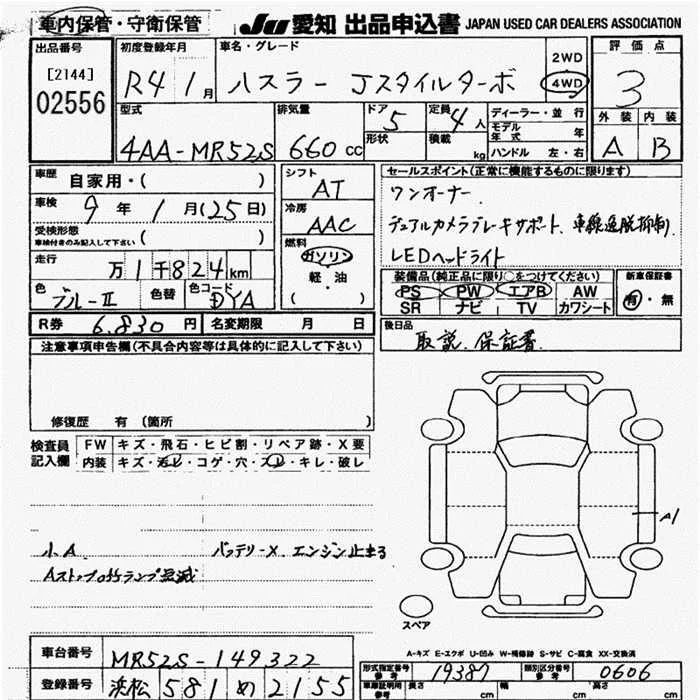 車内保管・守衛保管
JU 愛知 出品申込書 JAPAN USED CAR DEALERS ASSOCIATION
出品番号
[2144]
02556
初度登録年月
R4 1月
車名・グレード
ハスラー Jスタイルターボ
2WD
4WD
評価点
3
外装 内装
A B
型式
4AA-MR52S
排気量
660cc
ドア 5
形状
定員 4人
積載 kg
ディーラー・並行
モデル年式 年
ハンドル 左・右
車歴 自家用・( )
車検 9年1月(25日)
受検形態
車検付きのみ記入して下さい ( )
走行 万1千824km
色 ブルーII 色替 色コード DYA
シフト
AT
冷房
AAC
燃料
ガソリン
軽・油
( )
セールスポイント(正常に機能するものに限ります)
ワンオーナー.
デュアルカメラブレーキサポート、車線逸脱抑制、
LEDヘッドライト
装備品(純正品に限り○をつけてください)
PS PW エアB AW
SR ナビ TV カワシート
新車保証書
有・無
R券 6,830円 名変期限 月 日
後日品
取説、保証書.
注意事項申告欄(不具合内容等は具体的に記入して下さい)
修復歴 有 (箇所 )
検査員記入欄
FW キズ・飛石・ヒビ割・リペア跡・X要
内装 キズ・汚レ・コゲ・穴・スレ・キレ・破レ
小A バッテリーX、エンジン止まる
Aストップ
ランプ点滅
A1
スペア
A-キズ E-エクボ U-凹み W-補修跡 S-サビ C-腐食 XX-交換済
車台番号 MR52S-149322
登録番号 浜松 581 め 2155
形式指定番号 参考 19387
類別区分番号 参考 0606
車庫証明用 参考 長さ cm 幅 cm 高さ cm